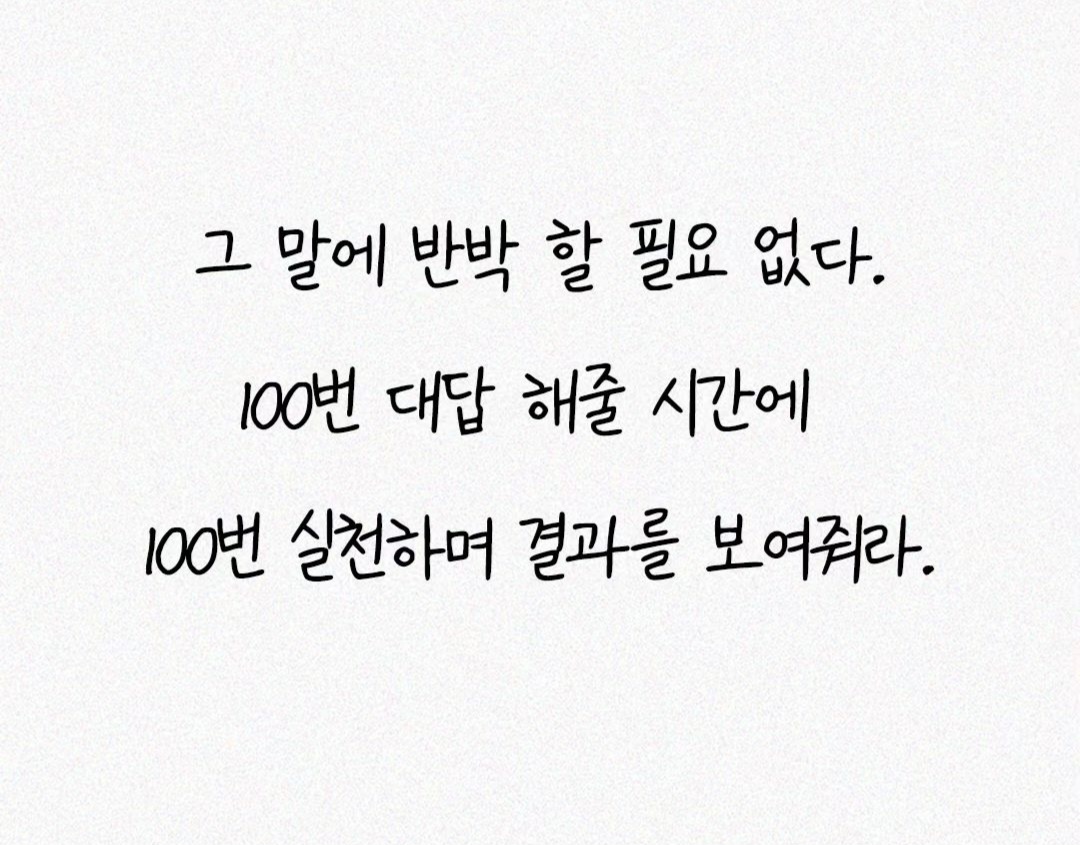 그 말에 반박 할 필요 없다.
100번 대답 해줄 시간에
100번 실천하며 결과를 보여줘라.